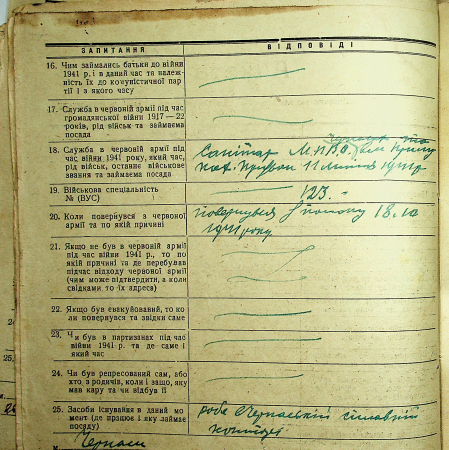 ЗАПИТАННЯ ВІДПОВІДІ
16. Чим займались батьки до війни
1941 р. і в даний час та належ-
ність їх до комуністичної пар-
тії і з якого часу
17. Служба в червоній армії під час
громадянської війни 1917—22
років, рід військ та займаема
посада
18. Служба в червоній армії під
час війни 1941 року, який час,
рід військ, останнє військове
звання та займаема посада
Санітар М.П.В.О.
11 1941 р
19. Військова спеціальність
№ (ВУС)
123.
20. Коли повернувся з червоної
армії та по якій причині
повернувся з полону 18.10
1941 року
21. Якщо не був в червоній армії
під час війни 1941 р., то по
якій причині та де перебував
підчас відходу червоної армії
(чим може підтвердити, а коли
свідками то їх адреса)
22. Якщо був евакуйований, то ко-
ли повернувся та звідки саме
23. Чи був в партизанах під час
війни 1941 р. та де саме і
який час
24. Чи був репресований сам, або
хто з родичів, коли і защо, яку
мав кару та чи відбув її
25. Засоби існування в даний мо-
мент (де працює і яку займає
посаду)
25,
м.